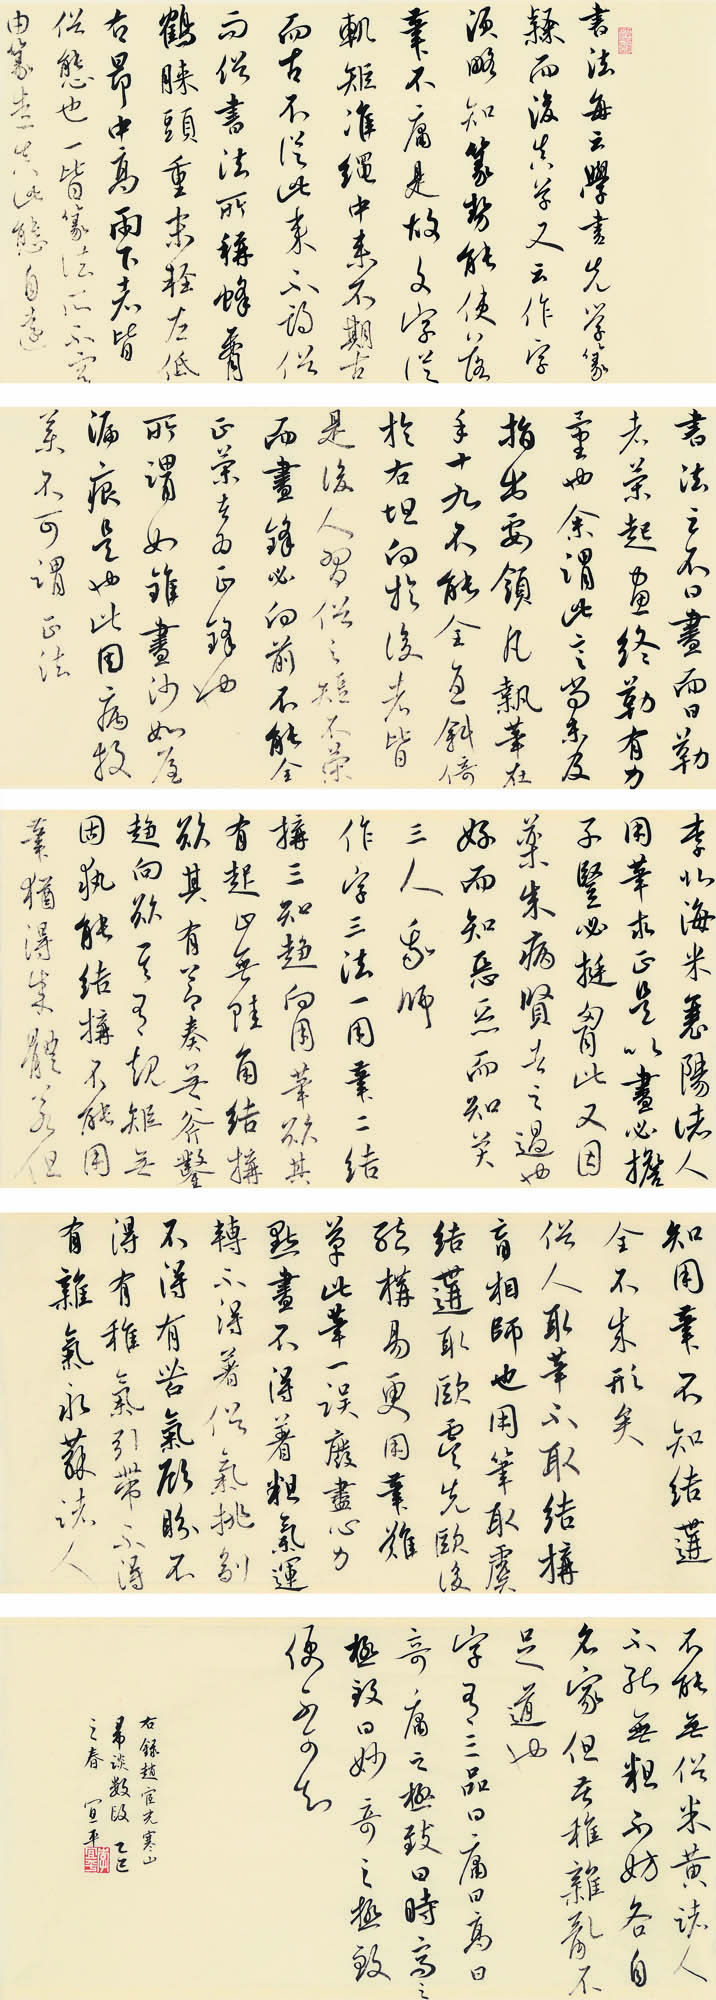 書法每云學書先學篆
隸而後真草又云作字
須略知篆勢能使落
筆不庸是故文字從
軌矩准繩中來不期古
而古不從此來不詢俗
而俗書法所稱蜂腰
鶴膝頭重末輕左低
右昂中高兩下者皆
俗態也一皆篆法所不容
由篆造真此態自遠
書法言不曰畫而曰勒
者策起畫終勒有力
量也余謂此言尚未及
指出要領凡執筆在
手十九不能全直斜倚
於右坦向於後者皆
是後人習俗之短不策
而畫鋒必向前不能全
正策者为正鋒也
所謂如錐畫沙如屋
漏痕是也此因病救
藥不可謂正法
李北海米襄陽諸人
用筆求正是以畫必擔
子豎必挺胸此又因
藥成病賢者之過也
好而知惡惡而知美
三人我師
作字三法一用筆二結
構三知趨向用筆欲其
有起止無圭角結構
欲其有節奏無斧鑿
趨向欲其有規矩無
固執能結構不能用
筆猶得成體若但
知用筆不知結構
全不成形矣
俗人取筆不取結構
盲相師也用筆取虞
結構取歐虞先歐後
結構易更用筆難
草此筆一誤廢盡心力
點畫不得著粗氣運
轉不得著俗氣挑剔
不得有苦氣顧盼不
得有稚氣引帶不得
有雜氣永蘇諸人
不能無俗米黃諸人
不能無粗不妨各自
名家但苦稚雜亂不
足道也
字有三品曰庸曰高曰
奇庸之極致曰時高之
極致曰妙奇之極致
便不可知
右錄趙宧光寒山
帚談數段 乙巳
之春 宣平